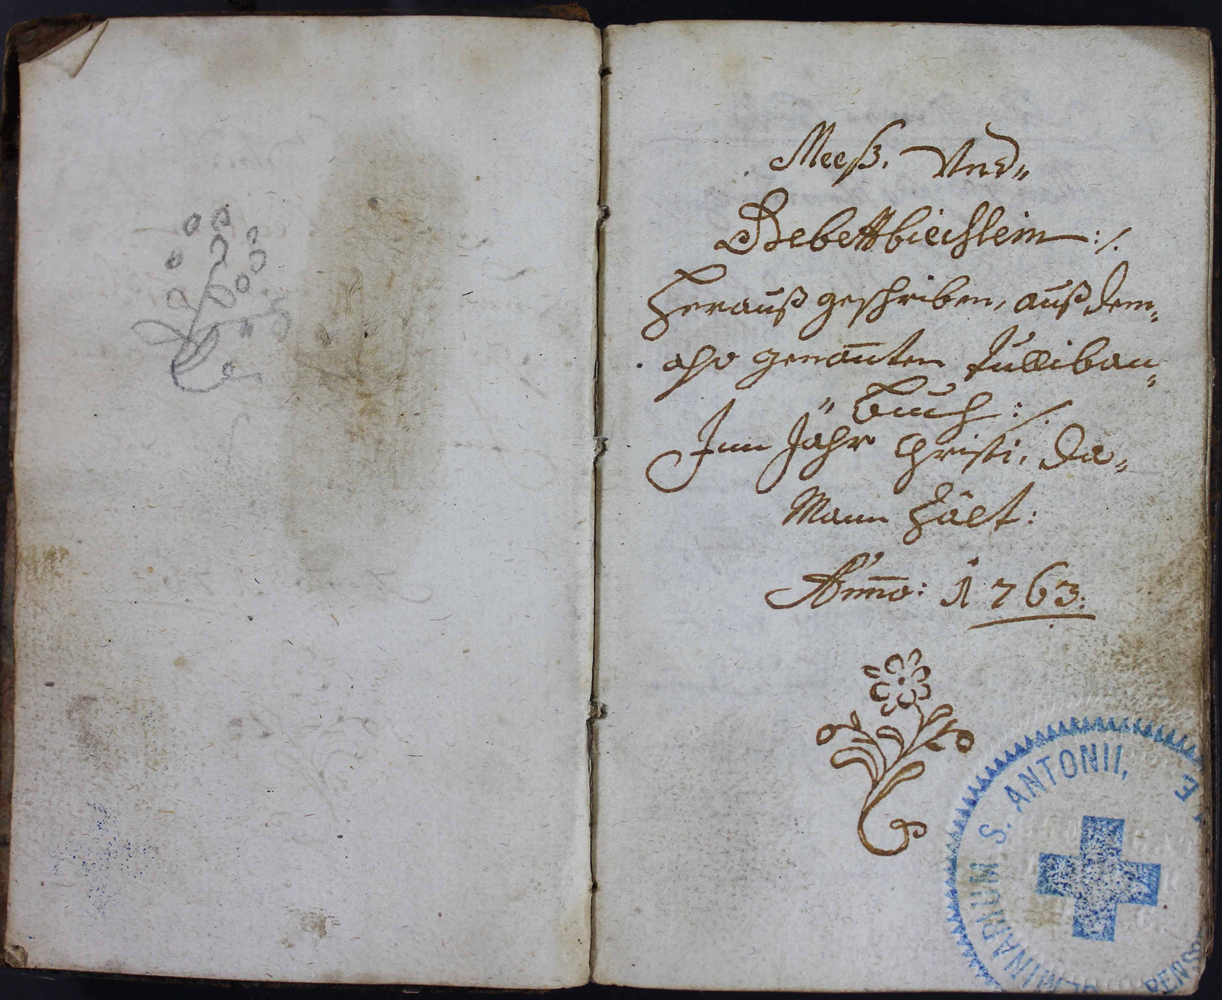 Meeß. Und„
Gebettbiechlein :/.
Herauß geschriben, auß dem„
also genanten Tulliban„
„ Buch :/.
Inn Jahr Christi, da„
Mann Zält:
Anno: 1763.
SEMINARIUM S. ANTONII,